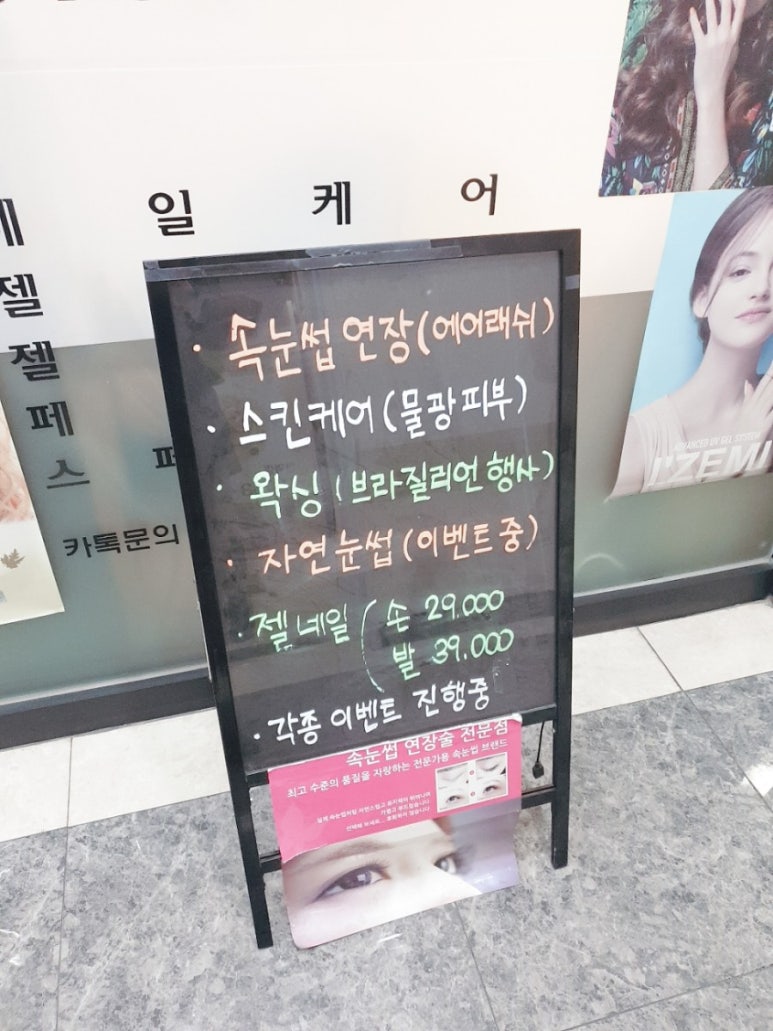 일 케 어
젤
젤
페
스 파
카톡문의
· 속눈썹 연장(에어래쉬)
· 스킨케어(물광피부)
· 왁싱(브라질리언행사)
· 자연눈썹(이벤트중)
· 젤네일(손 29.000
발 39.000
· 각종 이벤트 진행중
속눈썹 연장술 전문점
최고 수준의 품질을 자랑하는 전문가용 속눈썹 브랜드
ADVANCED BY GEL SYSTEM
I'ZEMI